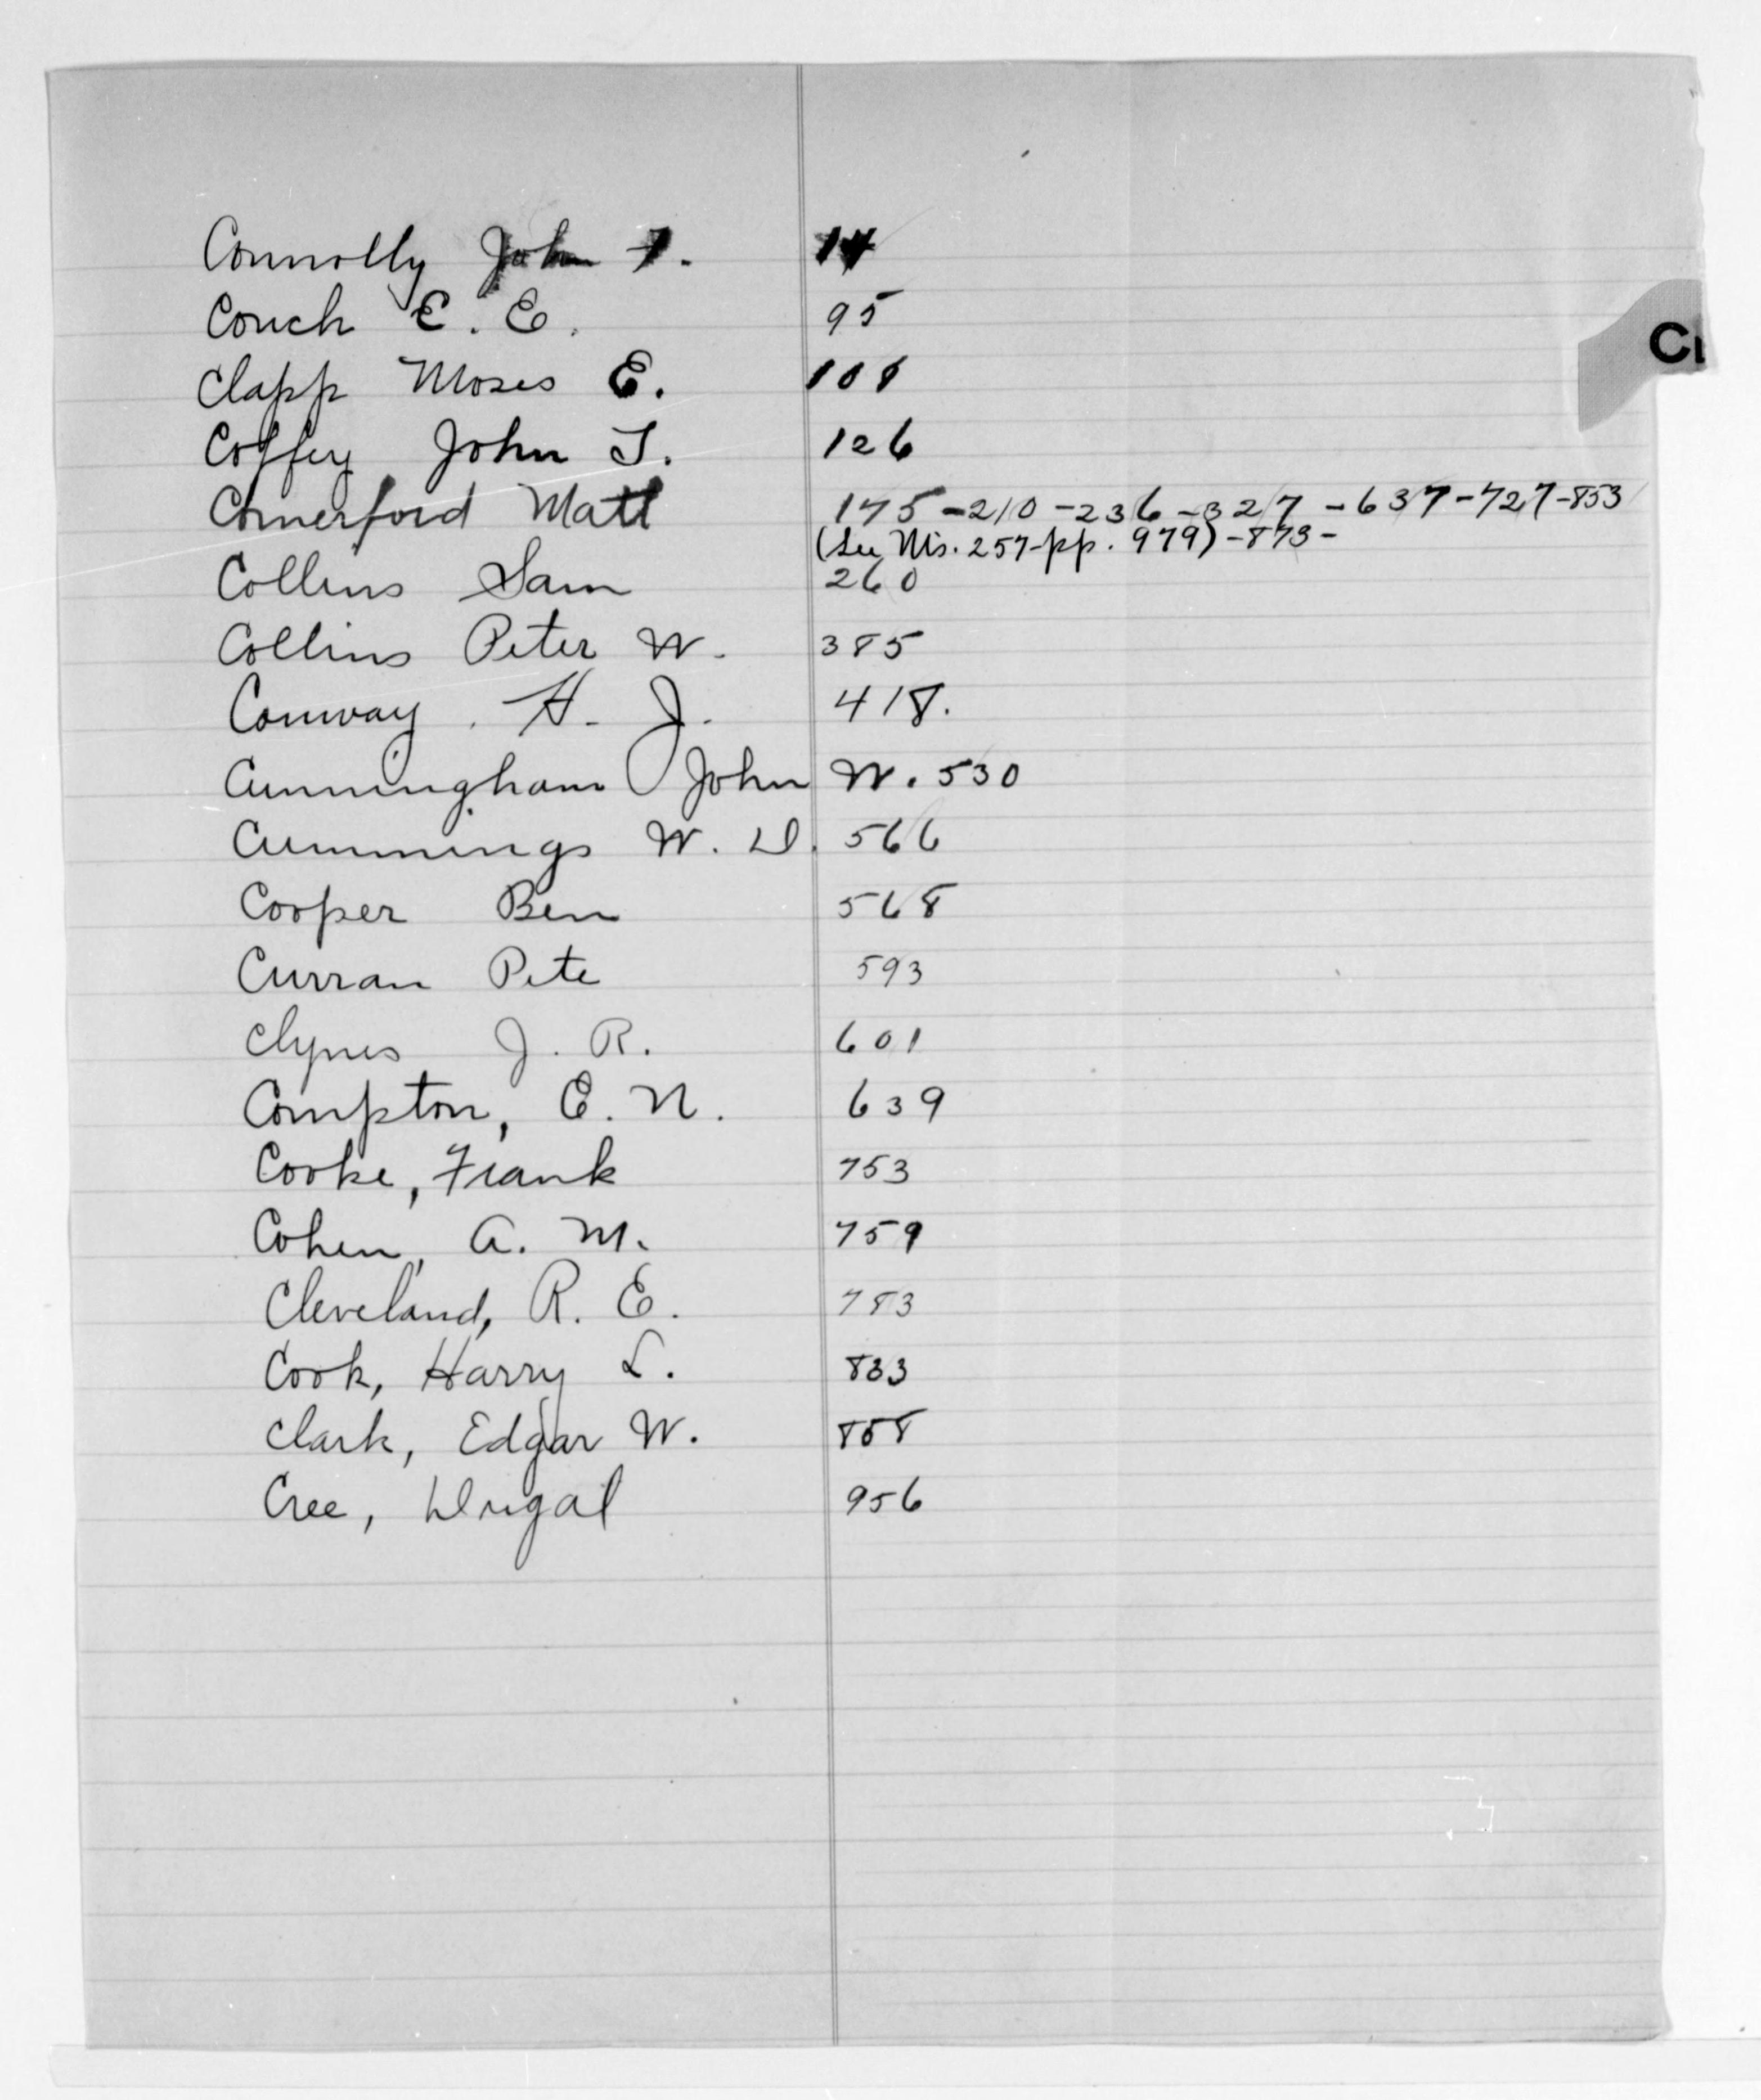 Connolly John F. 14
Couch E. E. 95
Ci
Clapp Moses E. 101
Coffey John T. 126
Comerford Matt 175-210-236-327-637-727-853
(See No. 257-pp. 979)-873-
Collins Sam 260
Collins Peter W. 385
Conway H. J. 418.
Cunningham John W. 530
Cummings W. D. 566
Cooper Ben 568
Curran Pete 593
Clynes J. R. 601
Compton, E. N. 639
Cooke, Frank 753
Cohen, A. M. 759
Cleveland, R. E. 783
Cook, Harry L. 833
Clark, Edgar W. 858
Cree, Dugal 956